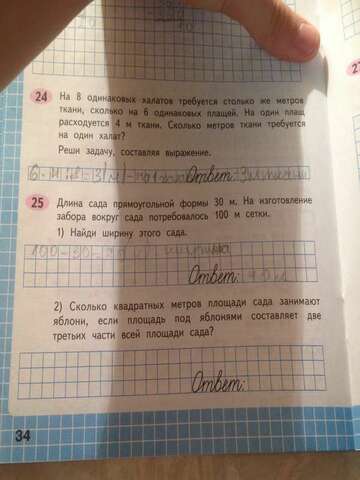 24 На 8 одинаковых халатов требуется столько же метров
ткани, сколько на 6 одинаковых плащей. На один плащ
расходуется 4 м ткани. Сколько метров ткани требуется
на один халат?
Реши задачу, составляя выражение.
Ответ:
25 Длина сада прямоугольной формы 30 м. На изготовление
забора вокруг сада потребовалось 100 м сетки.
1) Найди ширину этого сада.
100-30- ширина
Ответ:
2) Сколько квадратных метров площади сада занимают
яблони, если площадь под яблонями составляет две
третьих части всей площади сада?
Ответ:
34